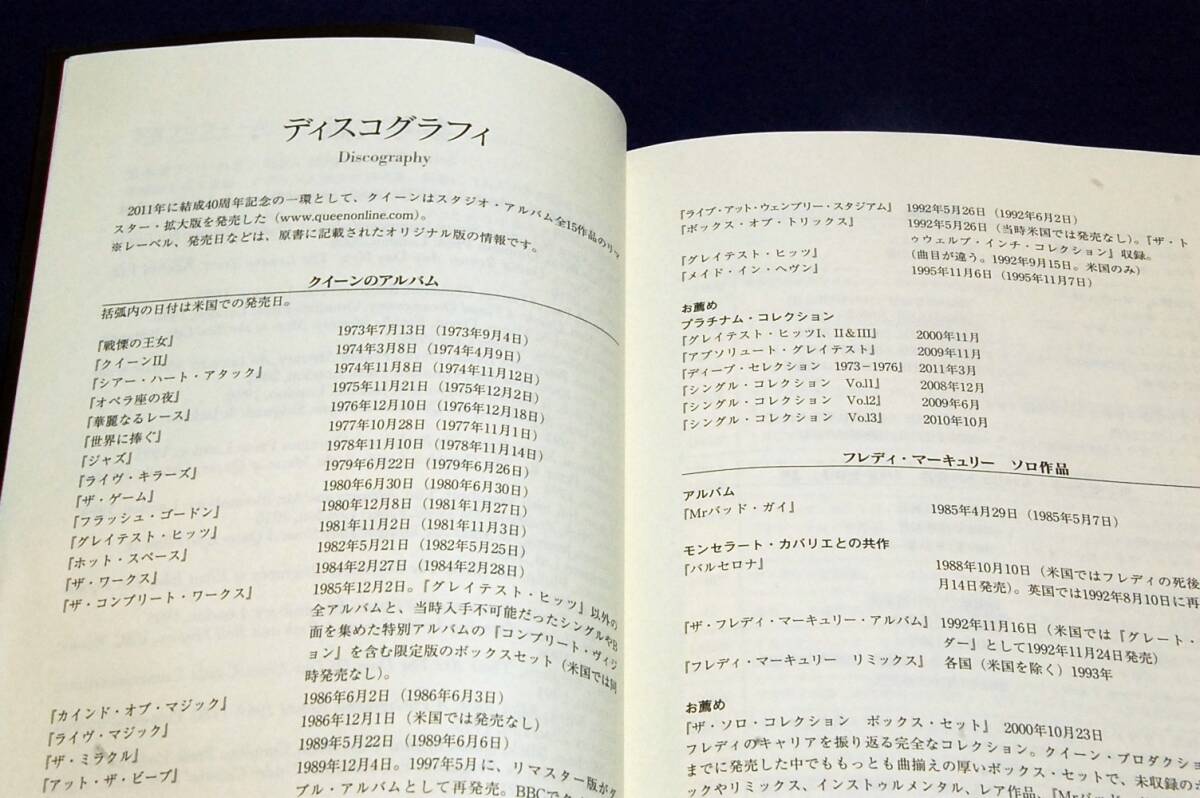 ディスコグラフィ
Discography
2011年に結成40周年記念の一環として、クイーンはスタジオ・アルバム全15作品のリマ
スター・拡大版を発売した（www.queenonline.com）。
※レーベル、発売日などは、原書に記載されたオリジナル版の情報です。
クイーンのアルバム
括弧内の日付は米国での発売日。
『戦慄の王女』 1973年7月13日（1973年9月4日）
『クイーンII』 1974年3月8日（1974年4月9日）
『シアー・ハート・アタック』 1974年11月8日（1974年11月12日）
『オペラ座の夜』 1975年11月21日（1975年12月2日）
『華麗なるレース』 1976年12月10日（1976年12月18日）
『世界に捧ぐ』 1977年10月28日（1977年11月1日）
『ジャズ』 1978年11月10日（1978年11月14日）
『ライヴ・キラーズ』 1979年6月22日（1979年6月26日）
『ザ・ゲーム』 1980年6月30日（1980年6月30日）
『フラッシュ・ゴードン』 1980年12月8日（1981年1月27日）
『グレイテスト・ヒッツ』 1981年11月2日（1981年11月3日）
『ホット・スペース』 1982年5月21日（1982年5月25日）
『ザ・ワークス』 1984年2月27日（1984年2月28日）
『ザ・コンプリート・ワークス』 1985年12月2日。『グレイテスト・ヒッツ』以外の
全アルバムと、当時入手不可能だったシングルやB
面を集めた特別アルバムの『コンプリート・ヴィジ
ョン』を含む限定版のボックスセット（米国では同
時発売なし）。
『カインド・オブ・マジック』 1986年6月2日（1986年6月3日）
『ライヴ・マジック』 1986年12月1日（米国では発売なし）
『ザ・ミラクル』 1989年5月22日（1989年6月6日）
『アット・ザ・ビーブ』 1989年12月4日。1997年5月に、リマスター版がダ
ブル・アルバムとして再発売。BBCで
『ライブ・アット・ウェンブリー・スタジアム』 1992年5月26日（1992年6月2日）
『ボックス・オブ・トリックス』 1992年5月26日（当時米国では発売なし）。『ザ・ト
ゥウェルブ・インチ・コレクション』収録。
『グレイテスト・ヒッツ』 （曲目が違う。1992年9月15日。米国のみ）
『メイド・イン・ヘヴン』 1995年11月6日（1995年11月7日）
お薦め
プラチナム・コレクション
『グレイテスト・ヒッツI、II＆III』 2000年11月
『アブソリュート・グレイテスト』 2009年11月
『ディープ・セレクション 1973－1976』 2011年3月
『シングル・コレクション Vo.l1』 2008年12月
『シングル・コレクション Vo.l2』 2009年6月
『シングル・コレクション Vo.l3』 2010年10月
フレディ・マーキュリー ソロ作品
アルバム
『Mrバッド・ガイ』 1985年4月29日（1985年5月7日）
モンセラート・カバリエとの共作
『バルセロナ』 1988年10月10日（米国ではフレディの死後
月14日発売）。英国では1992年8月10日に再
『ザ・フレディ・マーキュリー・アルバム』 1992年11月16日（米国では『グレート・
ダー』として1992年11月24日発売）
『フレディ・マーキュリー リミックス』 各国（米国を除く）1993年
お薦め
『ザ・ソロ・コレクション ボックス・セット』 2000年10月23日
フレディのキャリアを振り返る完全なコレクション。クイーン・プロダクショ
までに発売した中でももっとも曲揃えの厚いボックス・セットで、未収録の
ックやリミックス、インストゥルメンタル、レア作品、『Mrバッド